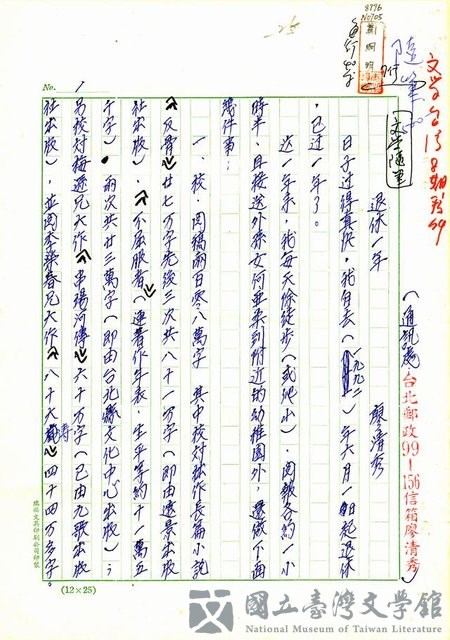 8776
No705
隨筆
文学台湾
文学隨筆
(通訊處台北郵政99-156信箱廖清秀)
退休一年
廖清秀
日子过得真快，我自去(一九九二)年六月一日起退休
，已过一年了。
这一年來，我每天除徒步(或爬山)、閱報各約一小
時半，且接送外孫女何亜柔到附近的幼稚園外，還做下面
幾件事：
一、校、閱稿兩百零八萬字 其中校对拙作長篇小說
《反骨》廿七万字先後三次共八十一万字(即由遠景出版
社出版)，《不屈服者》(連著作年表、生平等約十一萬五
千字)，兩次共廿三萬字(即由台北縣文化中心出版)；
另校对梅遜兄大作《串場河傳》六十万字(已由九歌出版
社出版)，並閱李榮春兄大作《八十大壽》四十四万多字。
No.
1
(12×25)
國立臺灣文學館
National Museum of Taiwan Literature